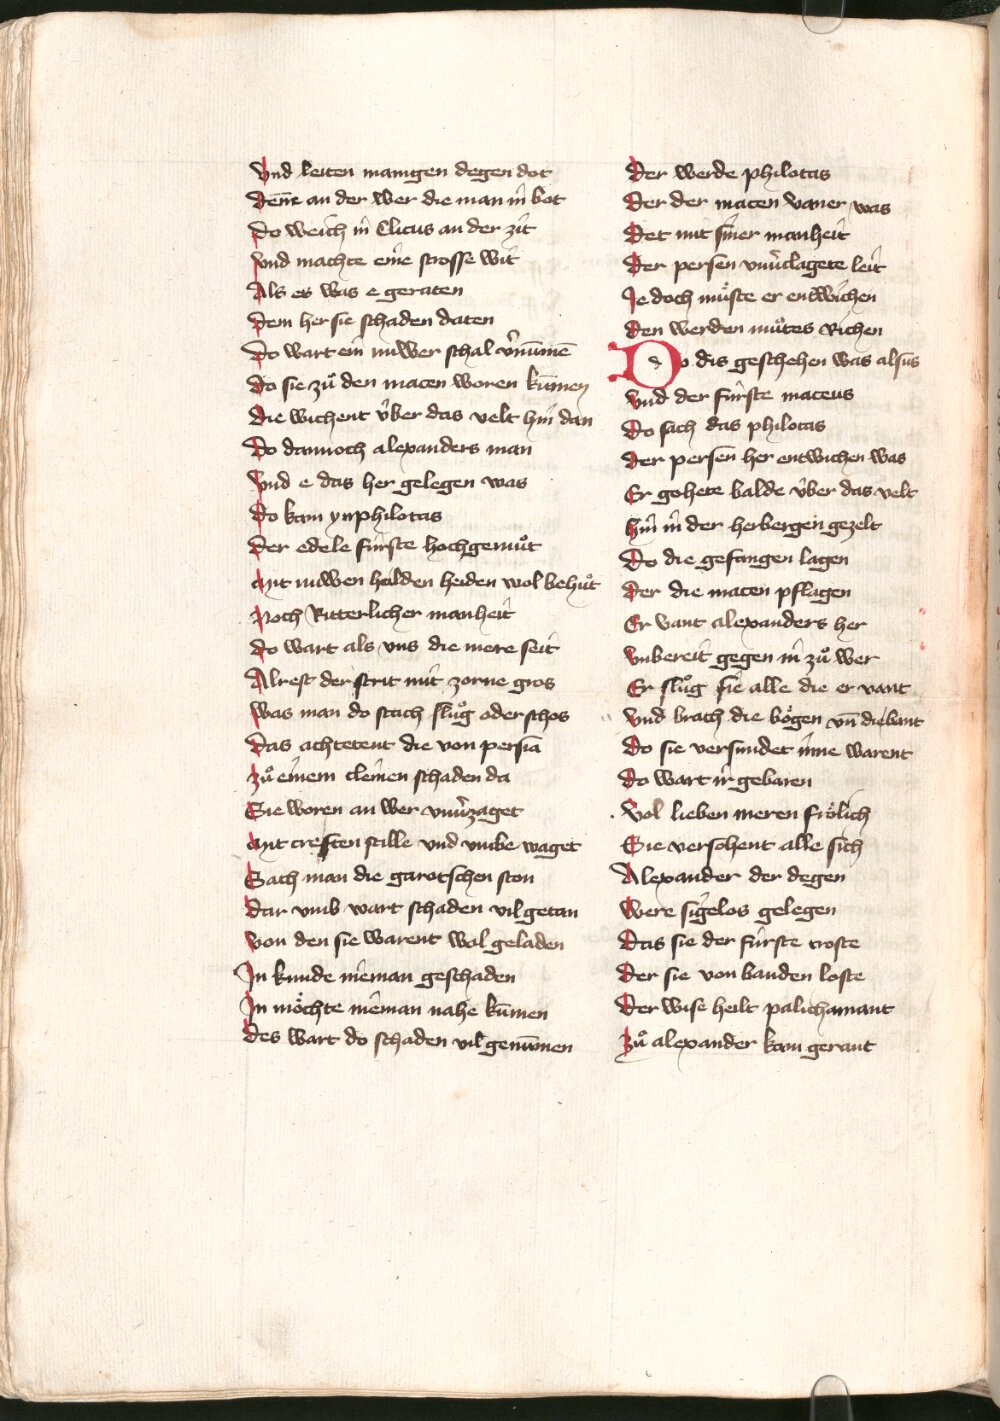 Vnd leiten manigen degen dot
Denne an der wer die man in bot
Do weich in Clicus an der zit
Vnd machte eine strosse wit
Als es was e geraten
Dem her sie schaden daten
Do wart ein nuwer schal v̂nūmē
Do sie zuͦ den macen woren kūmen
Die wichent v̂ber das velt hin dan
Do dannoch alexanders man
Vnd e das her gelegen was
Do kam yn philotas
Der edele fúrste hochgemuͦt
Mit nuwen halden heiden wol behuͦt
Noch Ritterlicher manheit
Do wart als vns die mere seit
Alrest der strit mit zorne gros
Was man do stach sluͦg oder schos
Das achtetent die von persia
Zuͦ einem cleinen schaden da
Sie woren an wer vnuͤzaget
Mit creften stille vnd vmbe waget
Sach man die garotschen ston
Dar vmb wart schaden vil getan
Von den sie warent wol geladen
In kunde nieman geschaden
In moͤchte nieman nahe kūmen
Des wart do schaden vil genūmen
Der werde philotas
Der der macen vaner was
Det mit siner manheit
Der persen vnuͤclagete leit
Je doch muͤste er entwichen
Den werden muͦtes Richen
Do dis geschehen was alsus
Vnd der fúrste maceus
Do sach das philotas
Der persen her entwichen was
Er gohete balde v̂ber das velt
Hin in der herbergen gezelt
Do die gefangen lagen
Der die macen pflagen
Er vant alexanders her
Vnbereit gegen in zuͦ wer
Er sluͦg sie alle die er vant
Vnd brach die boͤgen vn̄ die bant
Do sie versmidet inne warent
Do wart ir gebaren
Vol lieben meren froͤlich
Sie versohent alle sich
Alexander der degen
Were sigelos gelegen
Das sie der fúrste troste
Der sie von banden loste
Der wise helt palichamant
Zuͦ alexander kam gerant